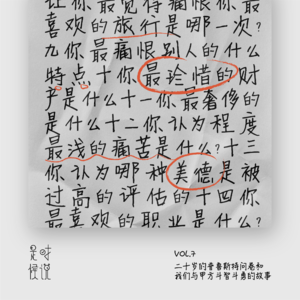 让你最觉得痛恨你最
喜欢的旅行是哪一次?
九你最痛恨别人的什么
特点十你最珍惜的财
产是什么十一你最奢侈的
是什么十二你认为程度
最浅的痛苦是什么?十三
你认为哪种美德是被
过高的评估的十四你
最喜欢的职业是什么?
是时
候说
VOL.7
二十岁的普鲁斯特问卷和
我们与甲方斗智斗勇的故事